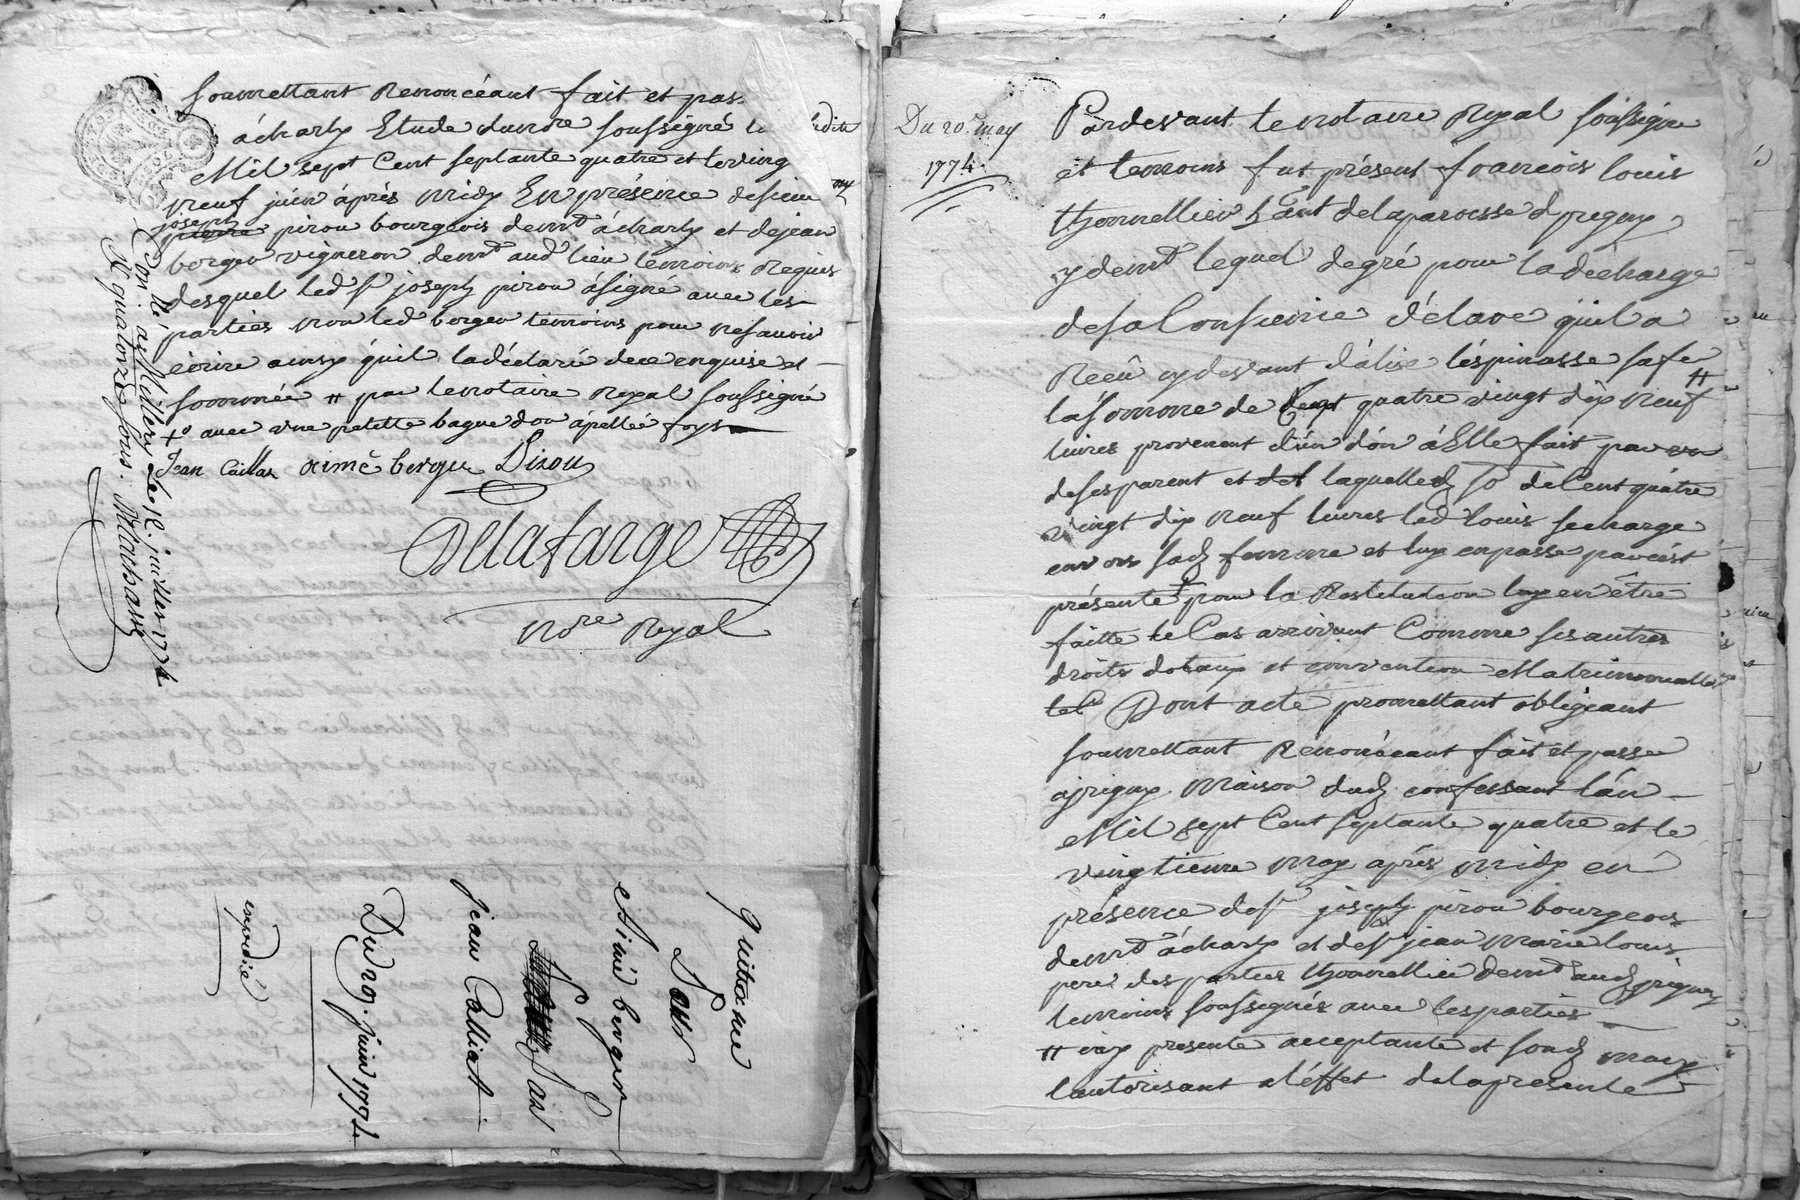 soumettant Renoncéant fait et pas
à charly Etude dunore soussigné
Mil sept Cent septante quatre et le ving
neuf juin après midy En présence de sieur
joseph
pierre pirou bourgeois demt à charly et de jean
berger vigneron demt aud lieu temoins Requis
desquel led sr joseph pirou à signé avec les
parties non led berger temoins pour ne savoir
écrire ainsy qu'il la déclaré de ce enquise et
sommée # par le notaire Royal soussigné
+o avec une petitte bague d'or apellée foys
Jean Caillat Aimé berger Pirou
Delafarge
nore Royal
Con. lé à Millery Le 12. juillet 1774
R quatorze sous.
Quittance
Par
Aimé berger
Par
Jean Calliat
Du 29. juin 1774.
expedié
Du 20. may
1774.
Pardevant le notaire Royal soussigné
et temoins fut présent françois louis
thonnellier hant de la paroisse d'yrigny
y demt lequel de gré pour la décharge
de sa Consience déclare qu'il a
Reçû cy devant d'alise léspinasse sa fe #
la somme de Cent quatre vingt dix neuf
livres provenent d'un d'on à Elle fait par un
de ses parent et de laquelled so de Cent quatre
vingt dix neuf livres led louis se charge
envers sad femme et luy en passe par cést
présente pour la Restitution luy en être
faitte le Cas arrivant Comme ses autres
droits dotaux et convention Matrimonialle
Dont acte promettant obligeant
soumettant Rénonceant fait et passe
a yrigny maison dud confessant l'an
Mil sept Cent septante quatre et le
vingtieme may après midy en
présence de sr joseph pirou bourgeois
demt à charly et de sr jean marie louis
pere des parties thonnellier demt aud yrigny
temoins soussignés avec les parties
# icy presente acceptante et soud mary
l'autorisant a l'éffet de la presente